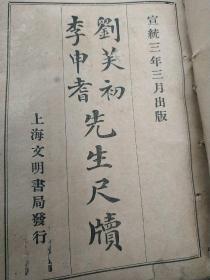 宣統三年三月出版
劉芙初
李申耆
先生尺牘
上海文明書局發行